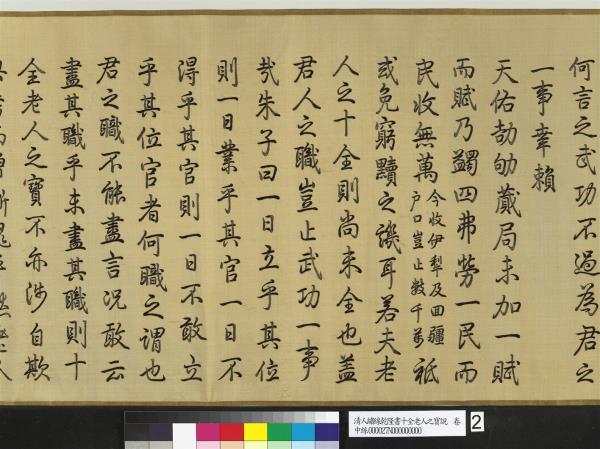 何言之武功不過為君之
一事幸賴
天佑劼劬蕆局未加一賦
而賦乃蠲四弗勞一民而
民收無萬今收伊犁及回疆戶口豈止數千萬祗
或免窮黷之譏耳若夫老
人之十全則尚未全也蓋
君人之職豈止武功一事
哉朱子曰一日立乎其位
則一日業乎其官一日不
得乎其官則一日不敢立
乎其位官者何職之謂也
君之職不能盡言況敢云
盡其職乎未盡其職則十
全老人之寶不亦涉自欺
清人繡線乾隆書十全老人之寶說 卷
中絲000027N000000000
2